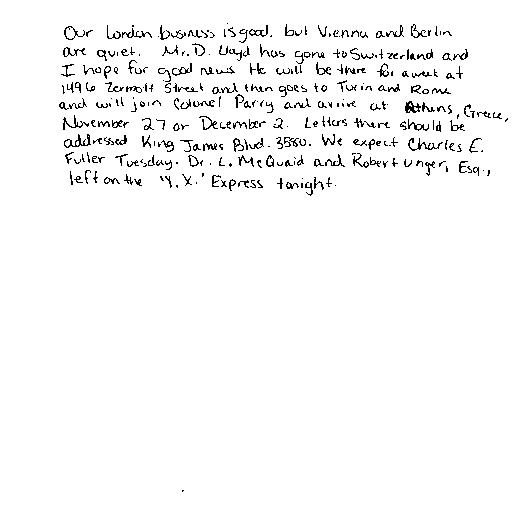 Our London business is good, but Vienna and Berlin
are quiet. Mr. D. Lloyd has gone to Switzerland and
I hope for good news He will be there for a week at
1496 Zermott Street and then goes to Turin and Rome
and will join Colonel Parry and arrive at Athens, Greece,
November 27 or December 2. Letters there should be
addressed King James Blvd. 3580. We expect Charles E.
Fuller Tuesday. Dr. L. McQuaid and Robert Unger, Esq.,
left on the 'Y.X.' Express tonight.